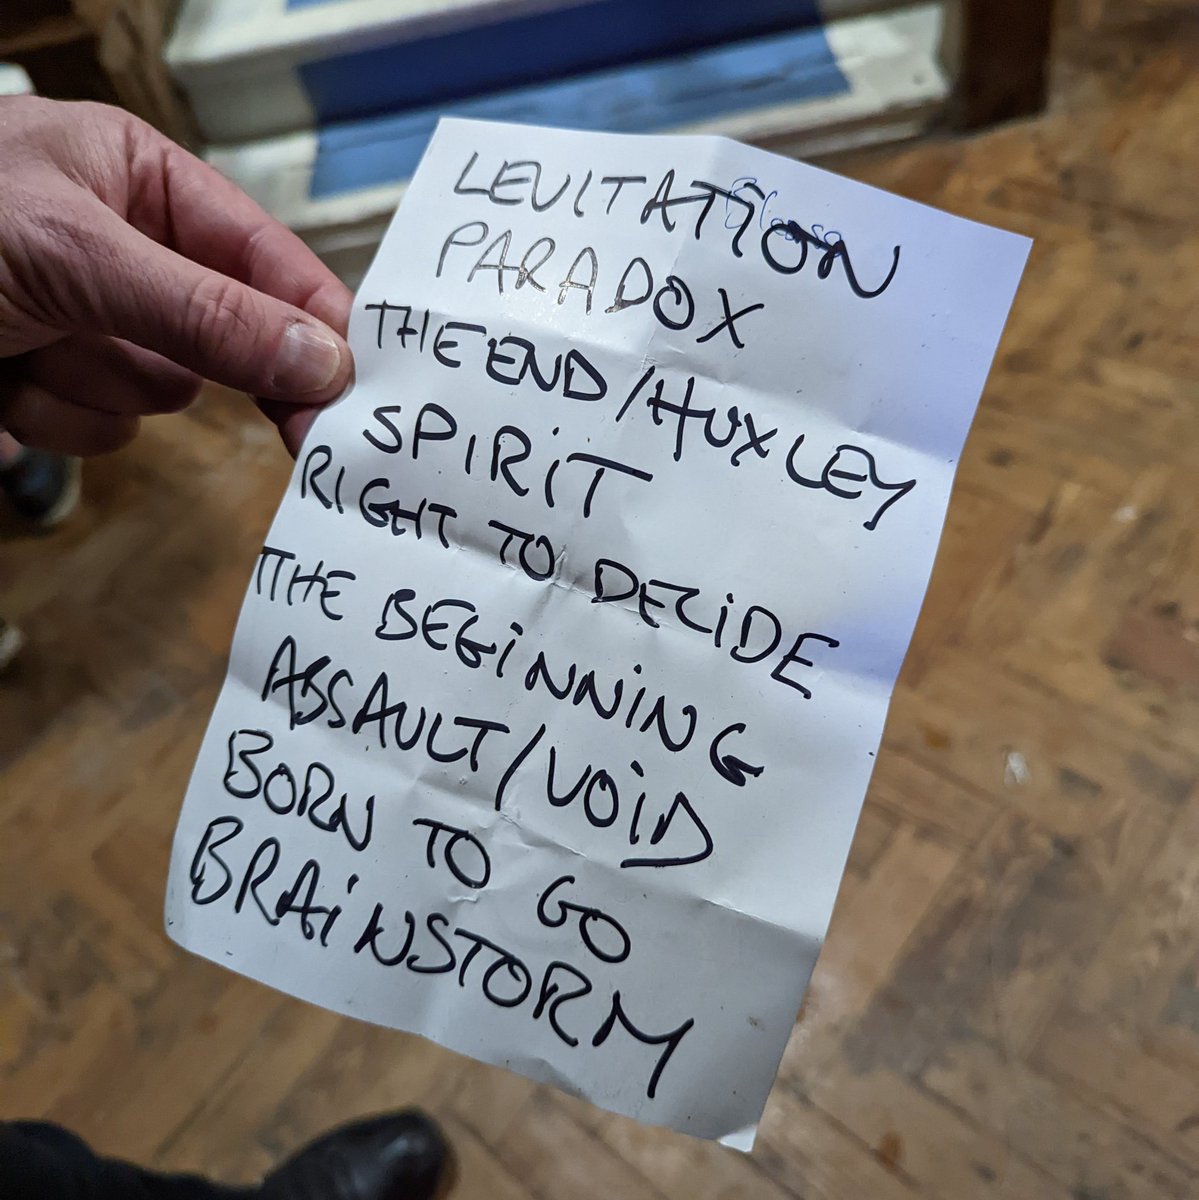 LEVITATION
PARADOX
THE END / HUXLEY
SPIRIT
RIGHT TO DECIDE
THE BEGINNING
ASSAULT / VOID
BORN TO GO
BRAINSTORM